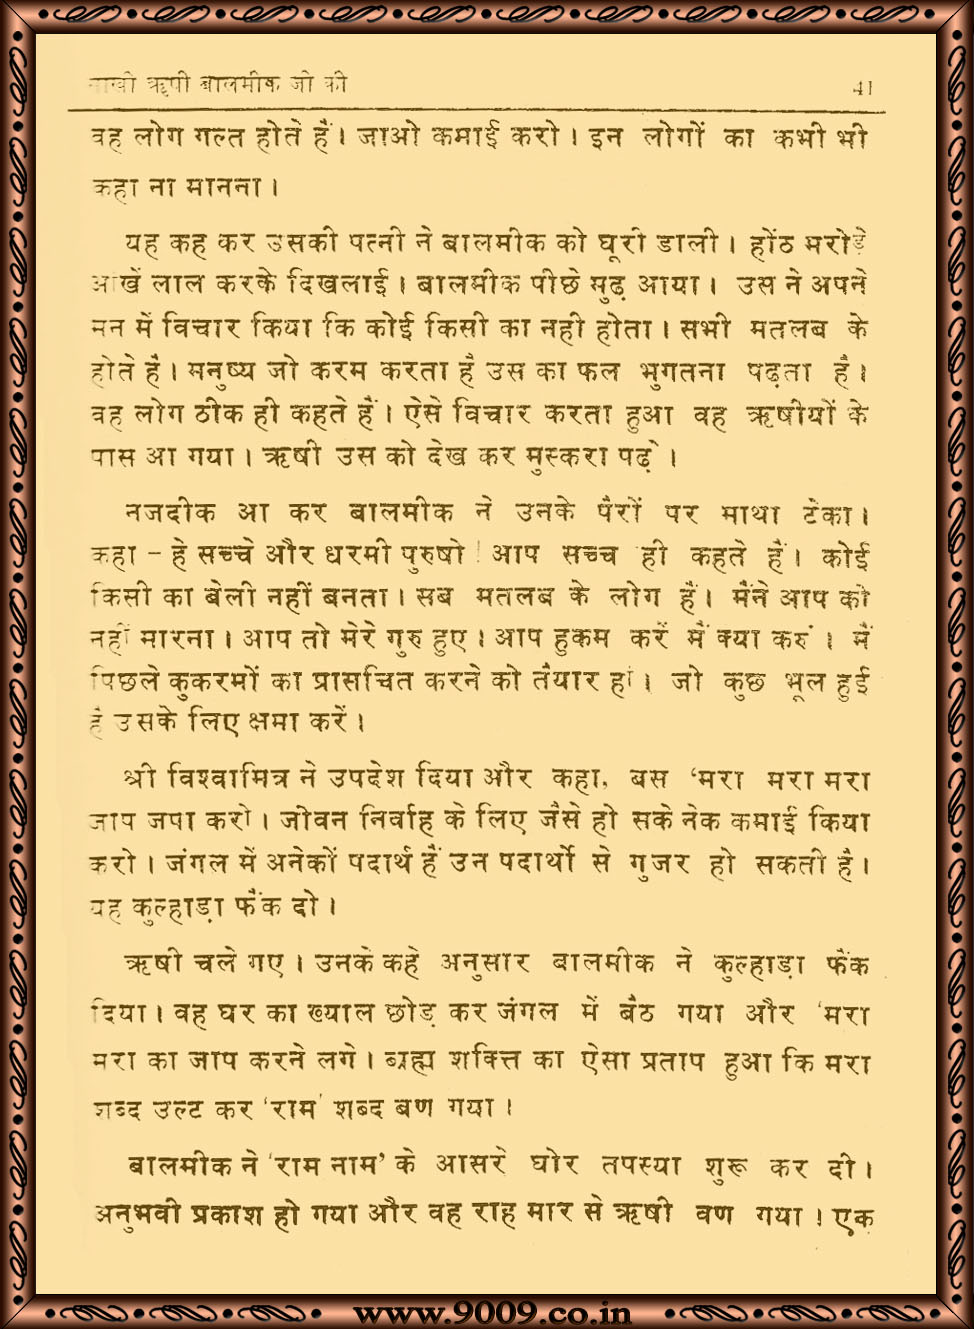 साखी ऋषी बालमीक जी की 41
वह लोग गल्त होते हैं। जाओ कमाई करो। इन लोगों का कभी भी
कहा ना मानना।
यह कह कर उसकी पत्नी ने बालमीक को घूरी डाली। होंठ मरोड़े
आंखें लाल करके दिखलाई। बालमीक पीछे मुढ़ आया। उस ने अपने
मन में विचार किया कि कोई किसी का नही होता। सभी मतलब के
होते हैं। मनुष्य जो करम करता है उस का फल भुगतना पढ़ता है।
वह लोग ठीक ही कहते हैं। ऐसे विचार करता हुआ वह ऋषीयों के
पास आ गया। ऋषी उस को देख कर मुस्करा पढ़े।
नजदीक आ कर बालमीक ने उनके पैरों पर माथा टेका।
कहा – हे सच्चे और धरमी पुरुषो! आप सच्च ही कहते हैं। कोई
किसी का बेली नहीं बनता। सब मतलब के लोग हैं। मैंने आप को
नहीं मारना। आप तो मेरे गुरु हुए। आप हुकम करें मैं क्या करुं। मैं
पिछले कुकरमों का प्रासचित करने को तैयार हां। जो कुछ भूल हुई
है उसके लिए क्षमा करें।
श्री विश्वामित्र ने उपदेश दिया और कहा, बस ‘मरा मरा मरा
जाप जपा करो। जीवन निर्वाह के लिए जैसे हो सके नेक कमाई किया
करो। जंगल में अनेकों पदार्थ हैं उन पदार्थो से गुजर हो सकती है।
यह कुल्हाड़ा फैंक दो।
ऋषी चले गए। उनके कहे अनुसार बालमीक ने कुल्हाड़ा फैंक
दिया। वह घर का ख्याल छोड़ कर जंगल में बैठ गया और ‘मरा
मरा का जाप करने लगे। ब्रह्म शक्ति का ऐसा प्रताप हुआ कि मरा
शब्द उल्ट कर ‘राम’ शब्द बण गया।
बालमीक ने ‘राम नाम’ के आसरे घोर तपस्या शुरू कर दी।
अनुभवी प्रकाश हो गया और वह राह मार से ऋषी वण गया! एक
www.9009.co.in